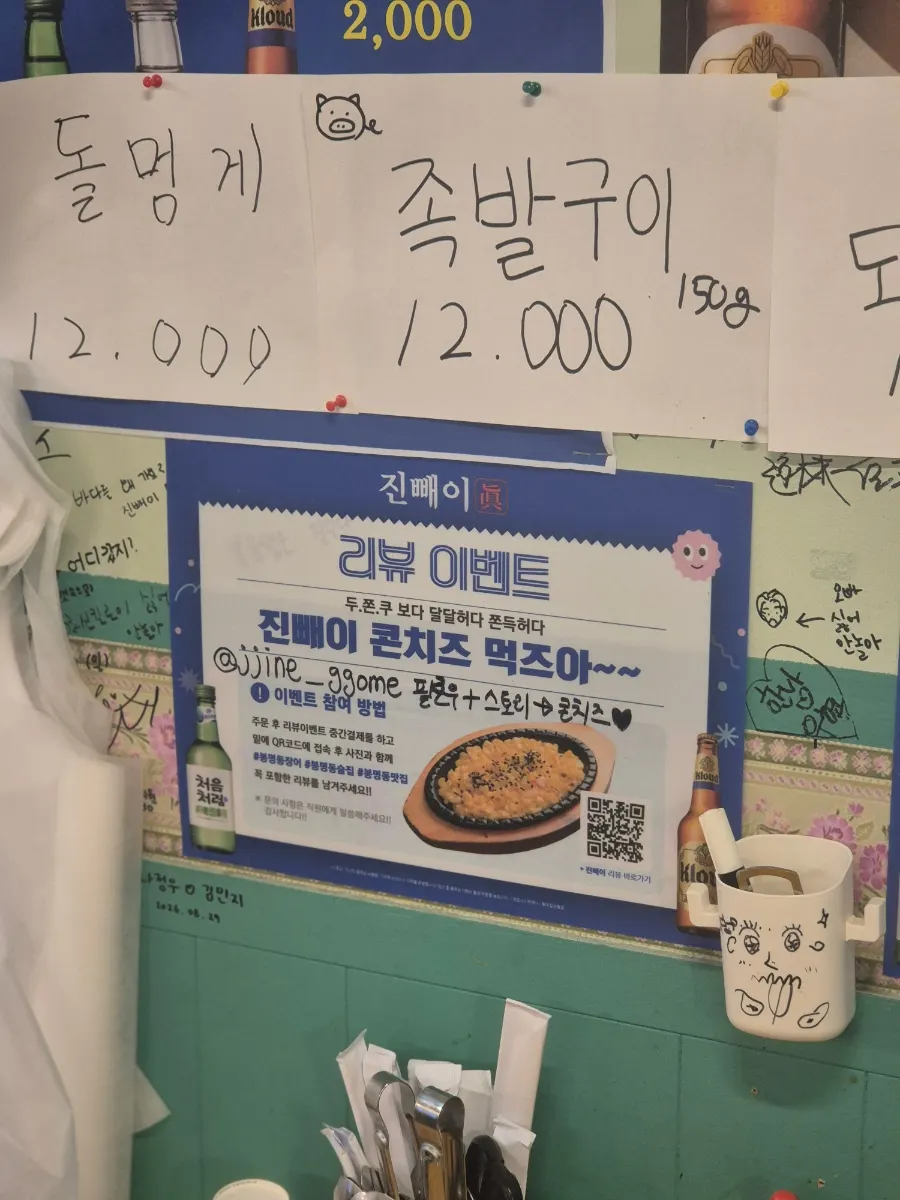 Kloud
2,000
돌멍게
12.000
족발구이
150g
12.000
진빼이 眞
리뷰 이벤트
두.쫀.쿠 보다 달달허다 쫀득허다
진빼이 콘치즈 먹즈아~~
@jjine_ggome 팔로우 + 스토리 → 콘치즈♥
! 이벤트 참여 방법
주문 후 리뷰이벤트 중간결제를 하고
밑에 QR코드에 접속 후 사진과 함께
#봉명동장어 #봉명동술집 #봉명동맛집
꼭 포함한 리뷰를 남겨주세요!!
* 문의 사항은 직원에게 말씀해주세요!!
감사합니다!!
▸진빼이 리뷰 바로가기
처음
처럼
Kloud
진빼이
어디갔지?
오빠
← 싫어
안놀아
나정우 김민지
2026.08.29